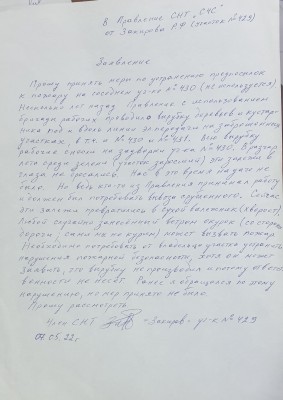 В Правление СНТ "СЧС"
от Закирова А.Ф (участок №429)
Заявление
Прошу принять меры по устранению предпосылок
к пожару на соседнем уч-ке №430 (не используется).
Несколько лет назад Правление с использованием
бригады рабочих проводило вырубку деревьев и кустар-
ника под и вдоль линии эл.передачи на заброшенных
участках, в т.ч. и №430 и №431. Всю вырубку
рабочие снесли на задворки уч-ка №430. В разгар
лета среди зелени (участок заросший) эти заросли в
глаза не бросались. Нас в это время на даче не
было. Но ведь кто-то из Правления принимал работу
и должен был потребовать вывоза срубленного. Сейчас
эти завалы превратились в сухой валежник (хворост).
Любой случайно занесённый ветром окурок (со стороны
дороги, сами мы не курим) может вызвать пожар.
Необходимо потребовать от владельца участка устранить
нарушения пожарной безопасности, хотя он может
заявить, что вырубку не производил и поэтому ответст-
венности не несёт. Ранее я обращался по этому
нарушению, но мер принято не было.
Прошу рассмотреть
Член СНТ -Закиров- уч-к №429
07.05.22г.